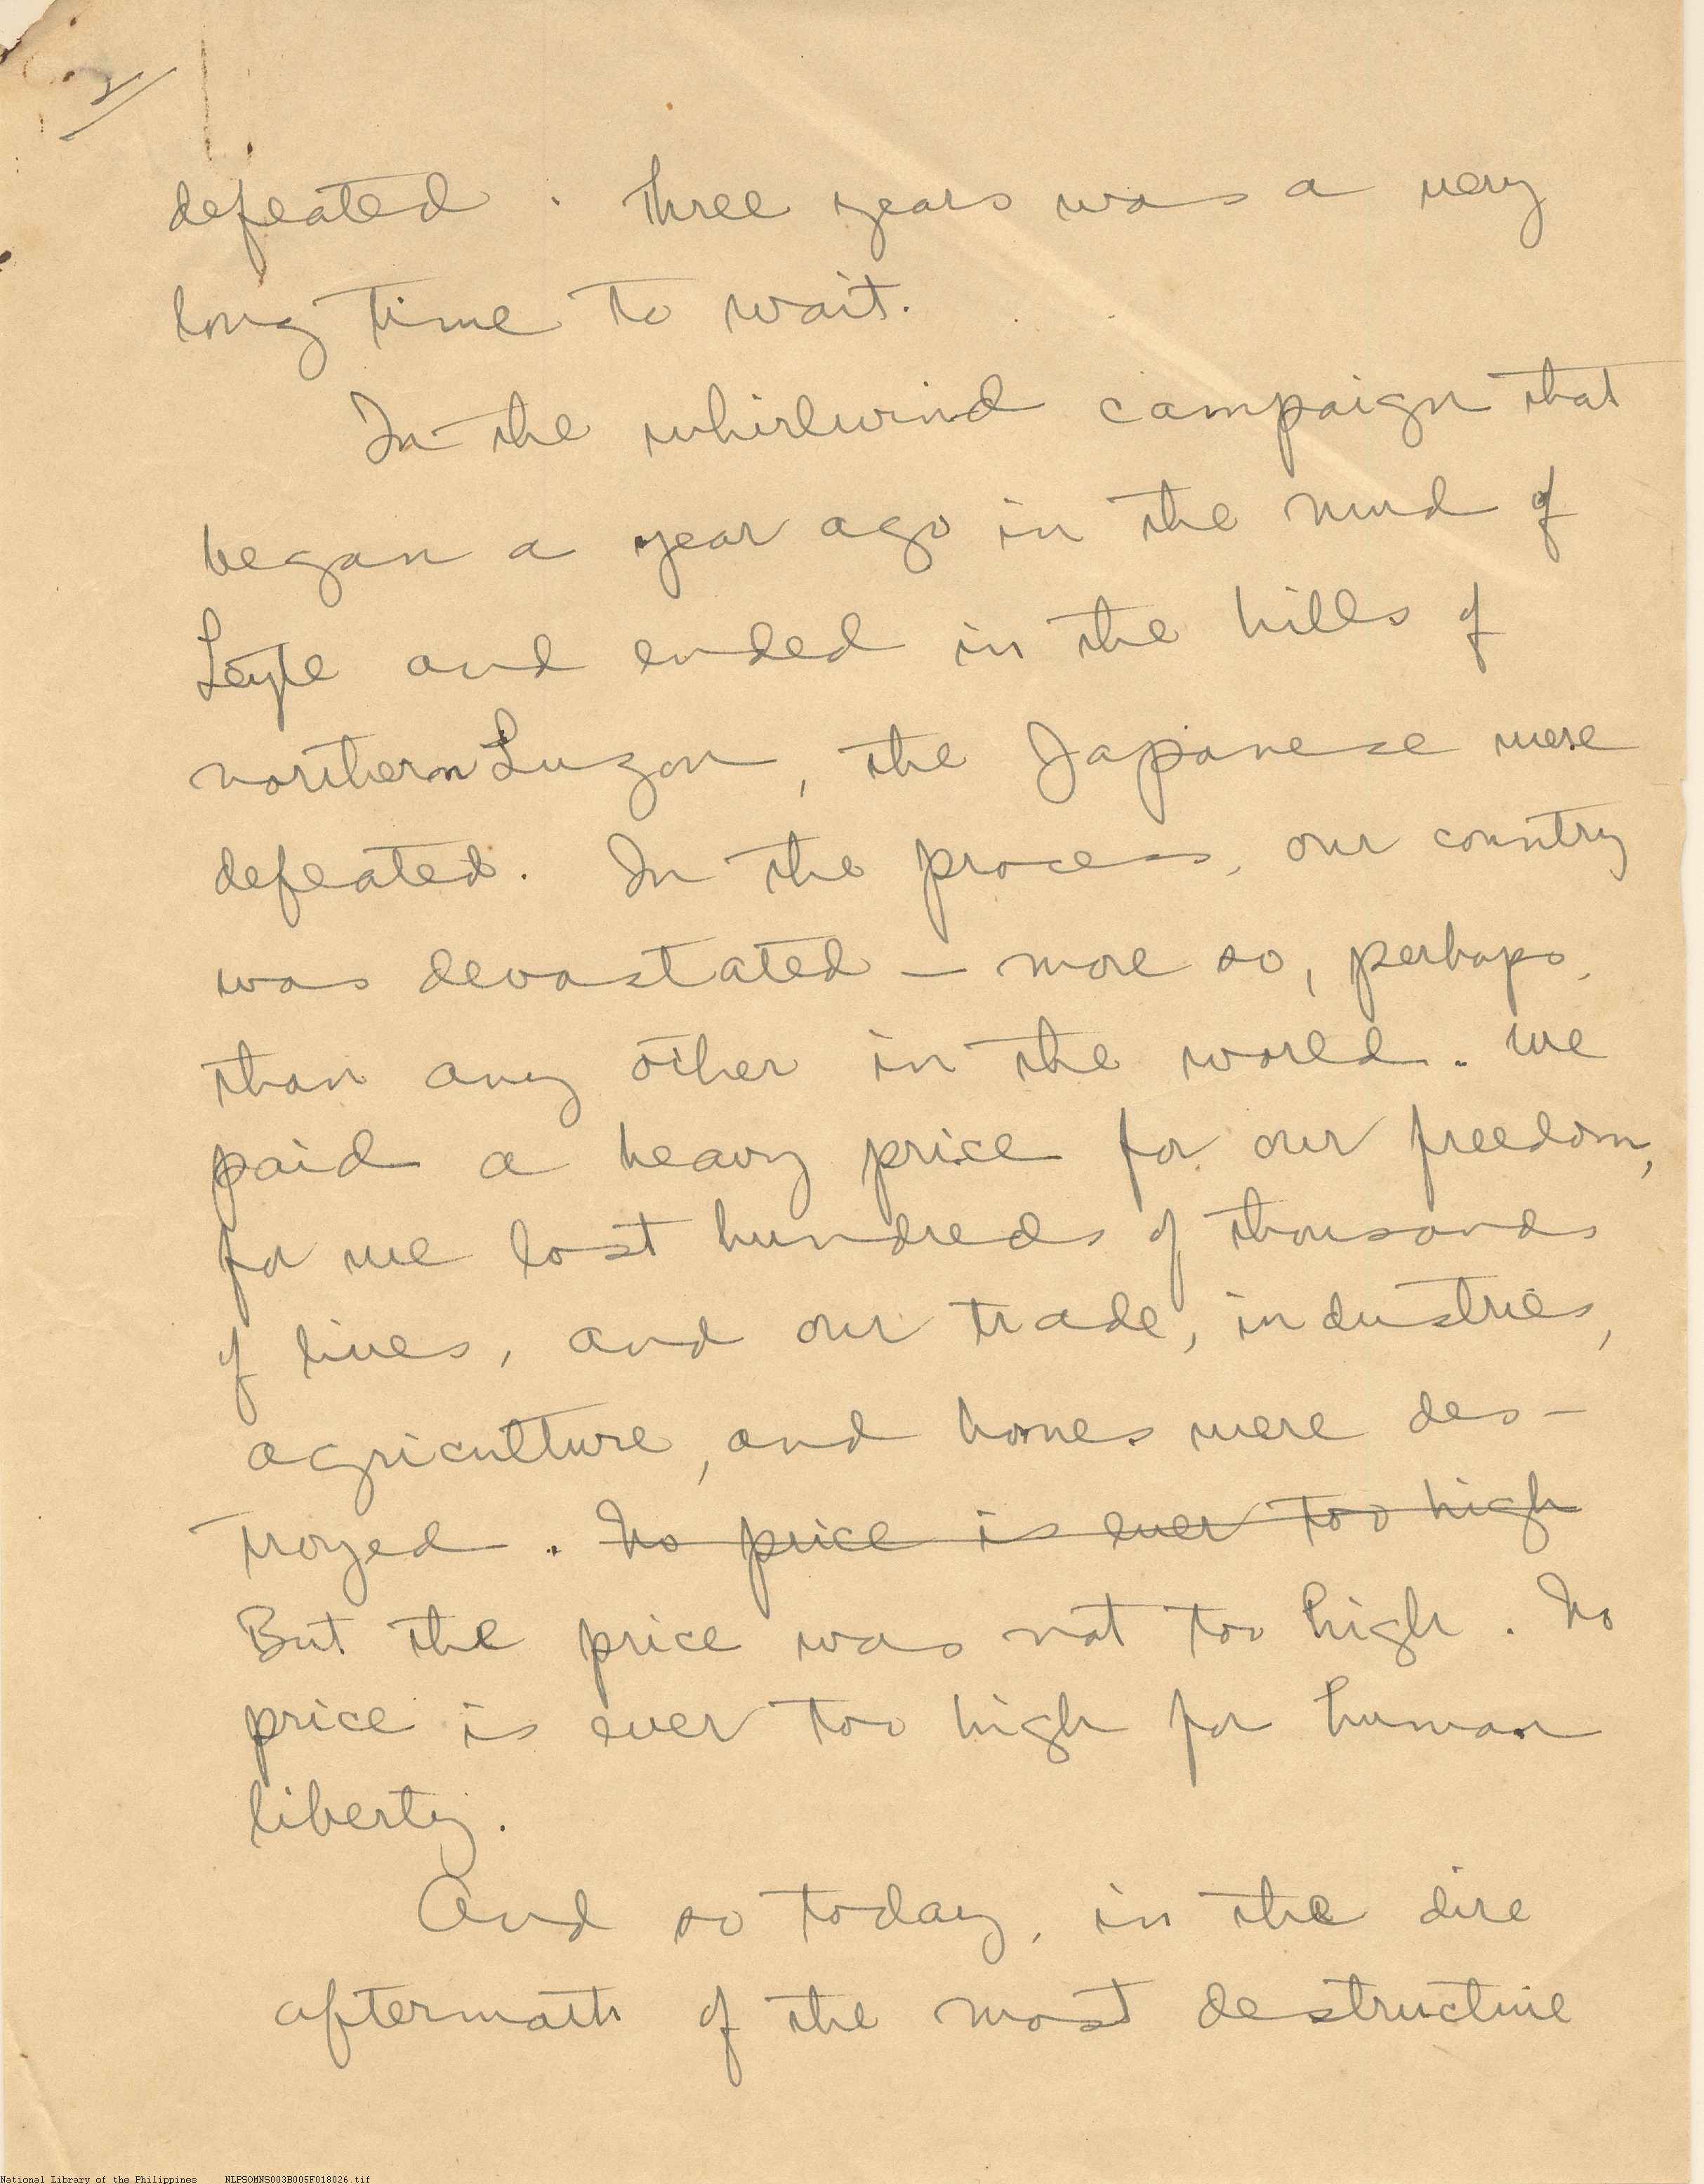 defeated. Three years was a very
long time to wait.
In the whirlwind campaign that
began a year ago in the mud of
Leyte and ended in the hills of
northern Luzon, the Japanese were
defeated. In the process, our country
was devastated — more so, perhaps,
than any other in the world. We
paid a heavy price for our freedom,
for we lost hundreds of thousands
of lives, and our trade, industries,
agriculture, and homes were des-
troyed. No price is ever too high
But the price was not too high. No
price is ever too high for human
liberty.
And so today, in the dire
aftermath of the most destructive
National Library of the Philippines NLPSOMNS003B005F018026.tif